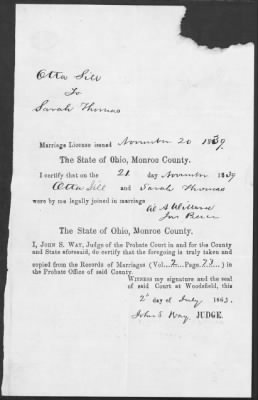 Otta Sill
To
Sarah Thomas
Marriage License issued November 20 1839.
The State of Ohio, Monroe County.
I certify that on the 21 day November 1839
Otta Sill and Sarah Thomas
were by me legally joined in marriage
The State of Ohio, Monroe County.
I, JOHN S. WAY, Judge of the Probate Court in and for the County
and State aforesaid, do certify that the foregoing is truly taken and
copied from the Records of Marriages (Vol. 2 Page 73) in
the Probate Office of said County.
WITNESS my signature and the seal
of said Court at Woodsfield, this
2d day of July 1863.
John S Way JUDGE.